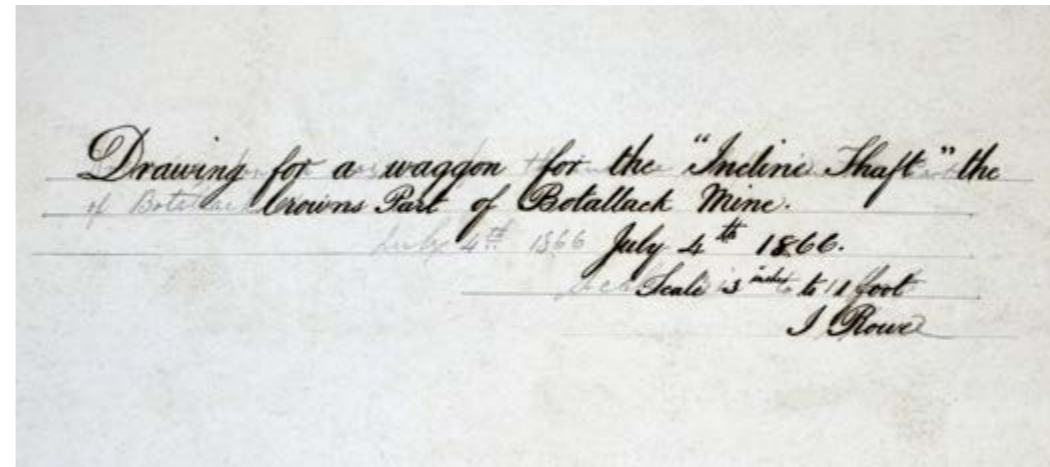 Drawing for a waggon for the "Incline Shaft" the
Crowns Part of Botallack Mine.
July 4th 1866.
Scale 3 inches to 1 foot
J Rowe
of Botallack
July 4th 1866